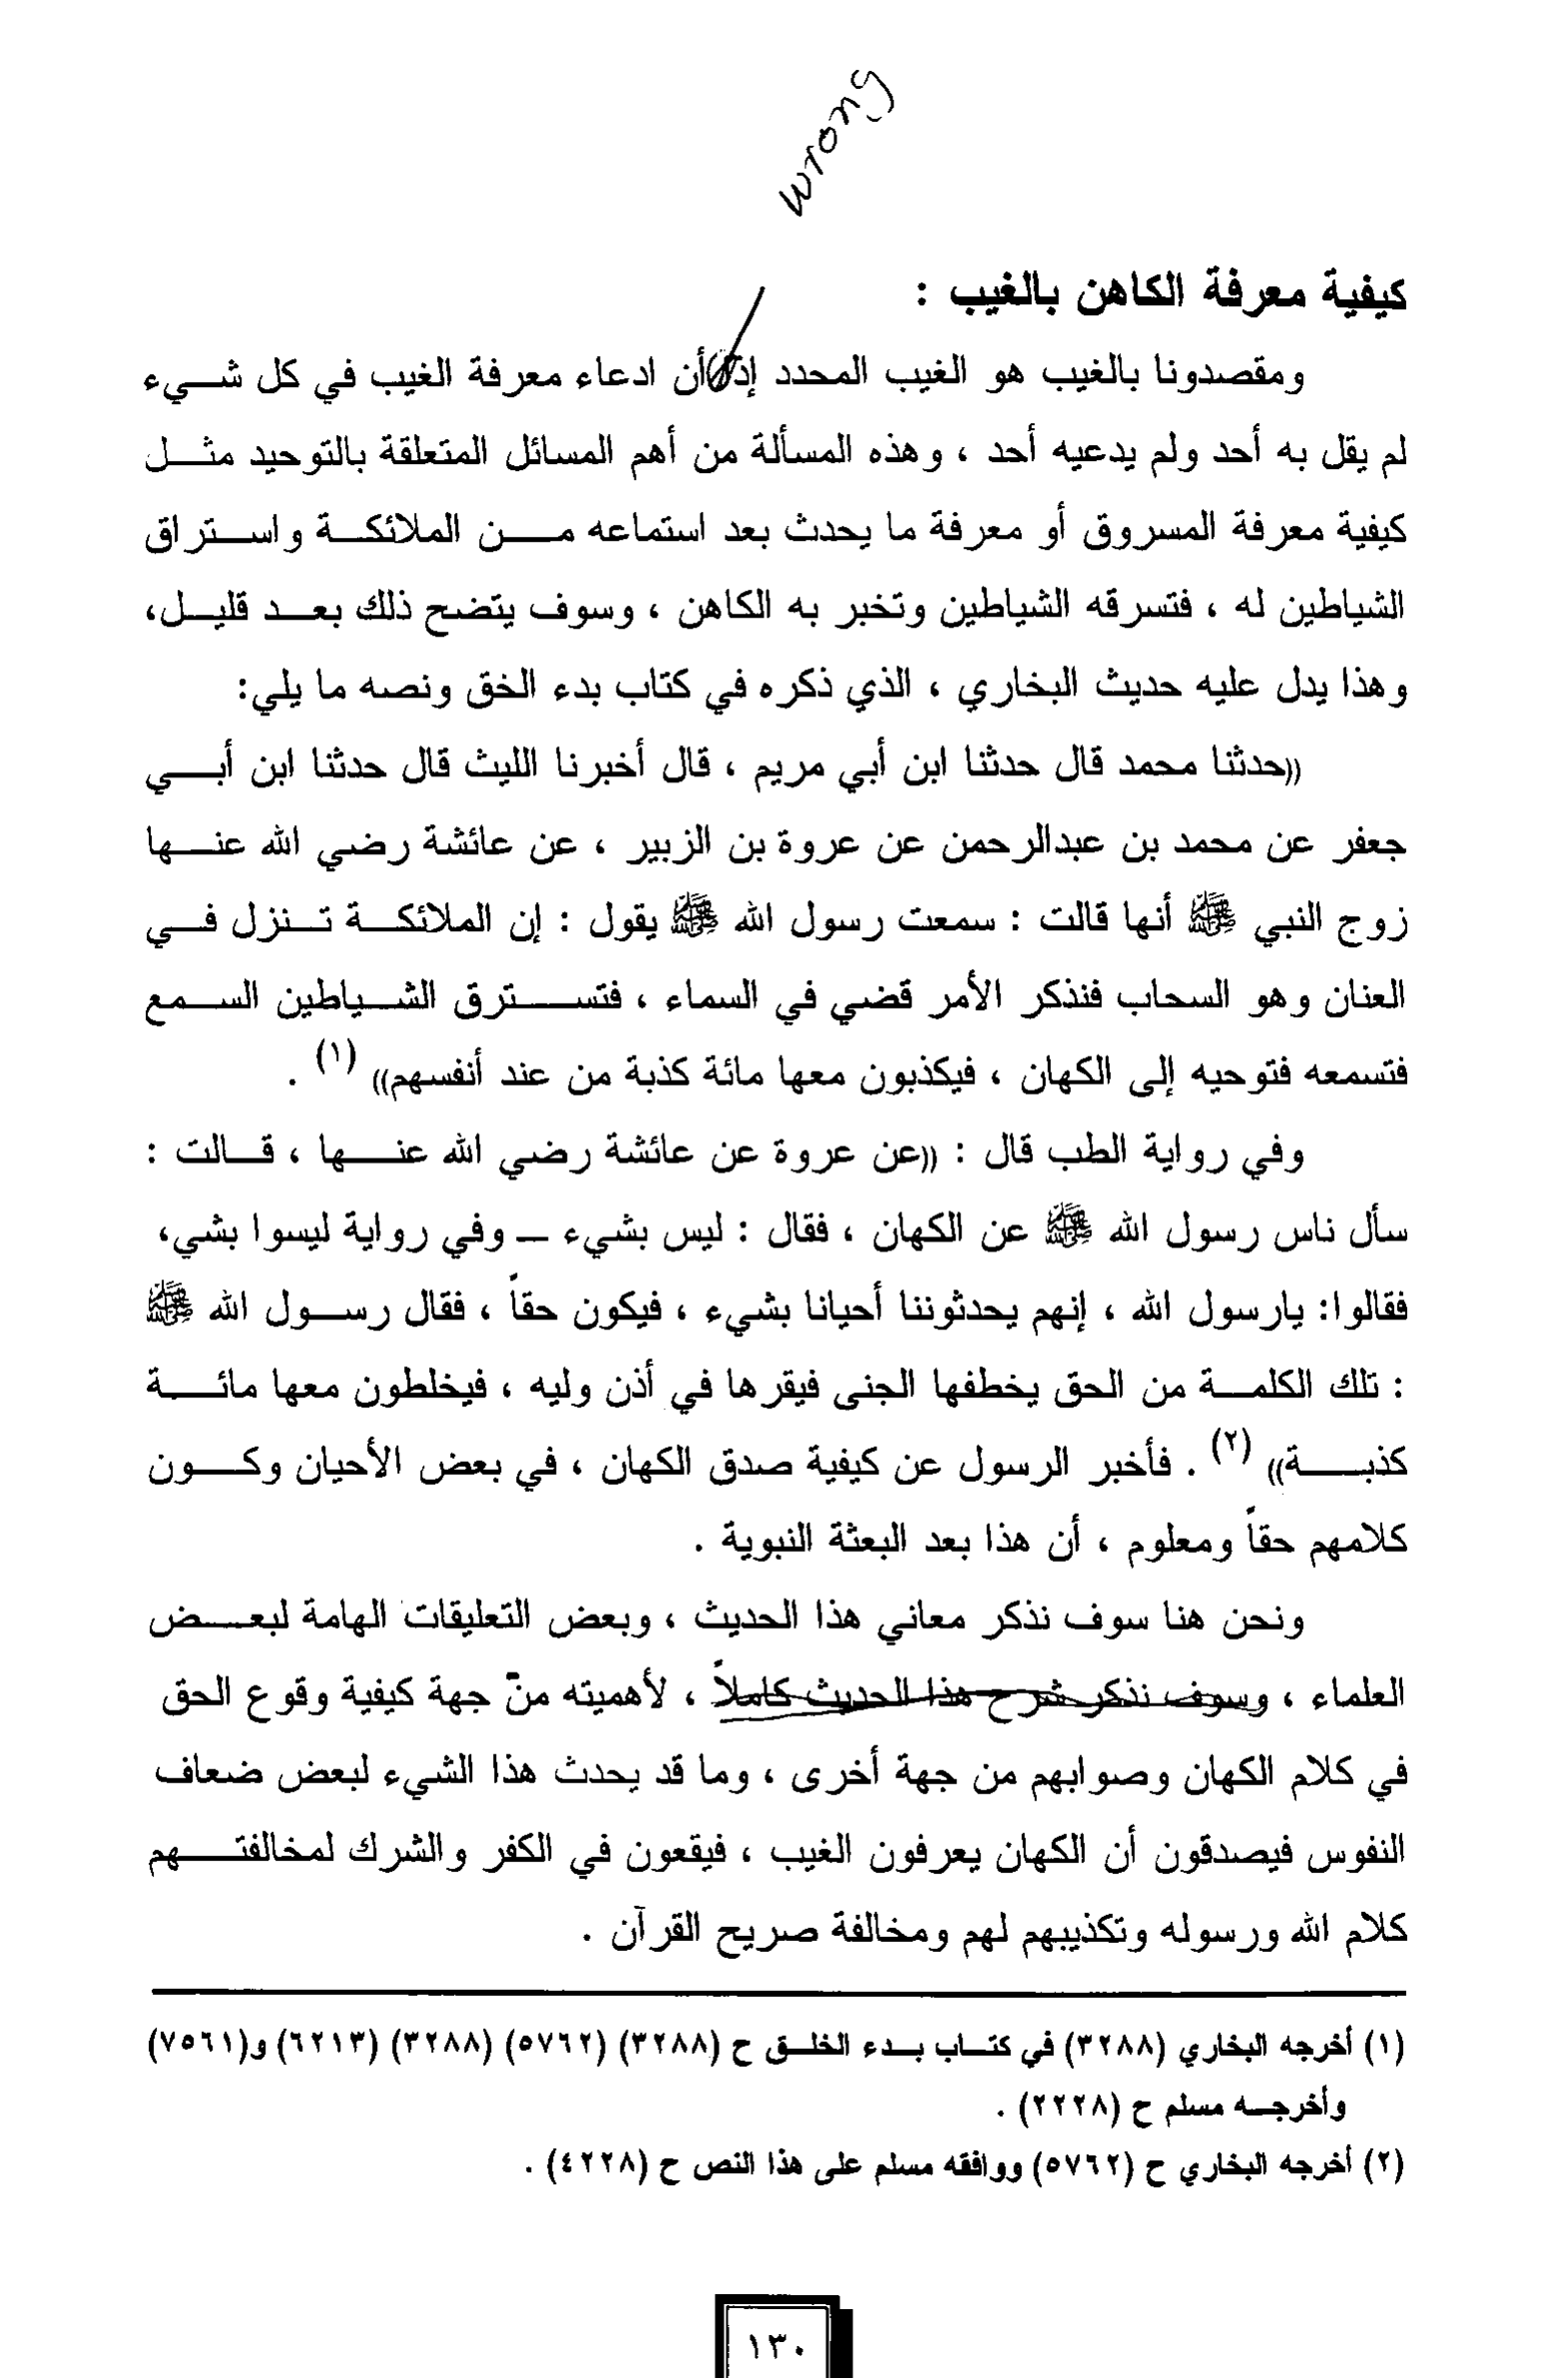 wrong
كيفية معرفة الكاهن بالغيب :
ومقصدونا بالغيب هو الغيب المحدد أن ادعاء معرفة الغيب في كل شيء
لم يقل به أحد ولم يدعيه أحد ، وهذه المسألة من أهم المسائل المتعلقة بالتوحيد مثل
كيفية معرفة المسروق أو معرفة ما يحدث بعد استماعه من الملائكة واستراق
الشياطين له ، فتسرقه الشياطين وتخبر به الكاهن ، وسوف يتضح ذلك بعد قليل،
وهذا يدل عليه حديث البخاري ، الذي ذكره في كتاب بدء الخق ونصه ما يلي:
((حدثنا محمد قال حدثنا ابن أبي مريم ، قال أخبرنا الليث قال حدثنا ابن أبي
جعفر عن محمد بن عبدالرحمن عن عروة بن الزبير ، عن عائشة رضي الله عنها
زوج النبي ﷺ أنها قالت : سمعت رسول الله ﷺ يقول : إن الملائكة تنزل في
العنان وهو السحاب فنذكر الأمر قضي في السماء ، فتسترق الشياطين السمع
فتسمعه فتوحيه إلى الكهان ، فيكذبون معها مائة كذبة من عند أنفسهم)) (١) .
وفي رواية الطب قال : ((عن عروة عن عائشة رضي الله عنها ، قالت :
سأل ناس رسول الله ﷺ عن الكهان ، فقال : ليس بشيء – وفي رواية ليسوا بشي،
فقالوا: يارسول الله ، إنهم يحدثوننا أحيانا بشيء ، فيكون حقاً ، فقال رسول الله ﷺ
: تلك الكلمة من الحق يخطفها الجنى فيقرها في أذن وليه ، فيخلطون معها مائة
كذبة)) (٢) . فأخبر الرسول عن كيفية صدق الكهان ، في بعض الأحيان وكون
كلامهم حقاً ومعلوم ، أن هذا بعد البعثة النبوية .
ونحن هنا سوف نذكر معاني هذا الحديث ، وبعض التعليقات الهامة لبعض
العلماء ، وسوف نذكر شرح هذا الحديث كاملاً ، لأهميته من جهة كيفية وقوع الحق
في كلام الكهان وصوابهم من جهة أخرى ، وما قد يحدث هذا الشيء لبعض ضعاف
النفوس فيصدقون أن الكهان يعرفون الغيب ، فيقعون في الكفر والشرك لمخالفتهم
كلام الله ورسوله وتكذيبهم لهم ومخالفة صريح القرآن .
(١) أخرجه البخاري (٣٢٨٨) في كتاب بدء الخلق ح (٣٢٨٨) (٥٧٦٢) (٣٢٨٨) (٦٢١٣) و(٧٥٦١)
وأخرجه مسلم ح (٢٢٢٨) .
(٢) أخرجه البخاري ح (٥٧٦٢) ووافقه مسلم على هذا النص ح (٤٢٢٨) .
١٣٠